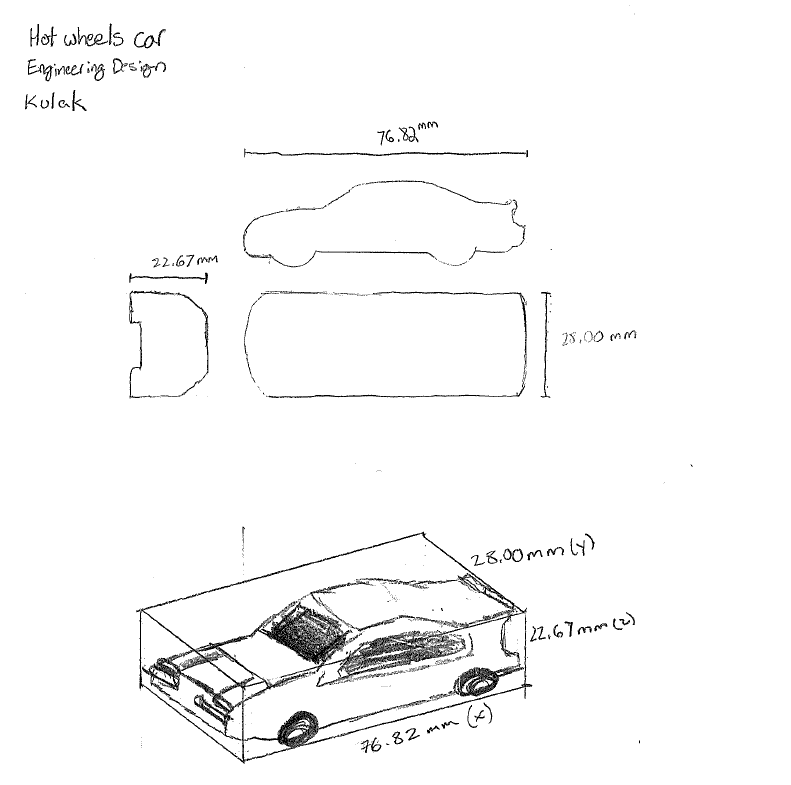 Hot wheels car
Engineering Design
Kulak
76.82mm
22.67mm
28.00 mm
28.00mm (y)
22.67mm (z)
76.82 mm (x)